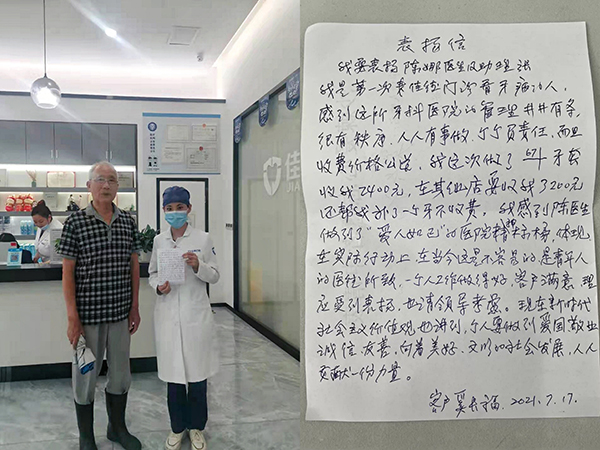 佳
JIA
表扬信
我要表扬陈娜医生及助理张
我是第一次来佳佳门诊看牙病的人，
感到这所牙科医院的管理井井有条
很有秩序，人人有事做，个个负责任，而且
收费价格公道，我这次做了6个牙套
收我2400元，在其他店要收我3200元
还帮我补了一个牙不收费，我感到陈医生
做到了“爱人如己”的医院精神
在实际行动上，在当今这是不容易的是青年人
的医住所致，一个人工作做得好，客户满意，理
应受到表扬，也请领导考虑。现在新时代
社会主义价值观也讲到，个人要做到爱国敬业
诚信友善，向着美好、文明的社会发展，人人
贡献一份力量。
客户 2021.7.17.